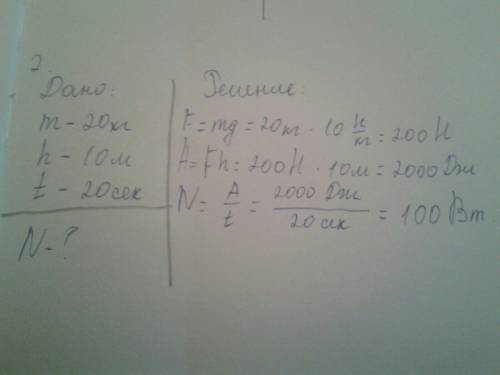 2.
Дано:
m - 20кг
h - 10м
t - 20сек
N - ?
Решение:
F = mg = 20кг · 10 Н/кг = 200 Н
A = Fh = 200Н · 10м = 2000 Дж
N = A/t = 2000 Дж/20 сек = 100 Вт.